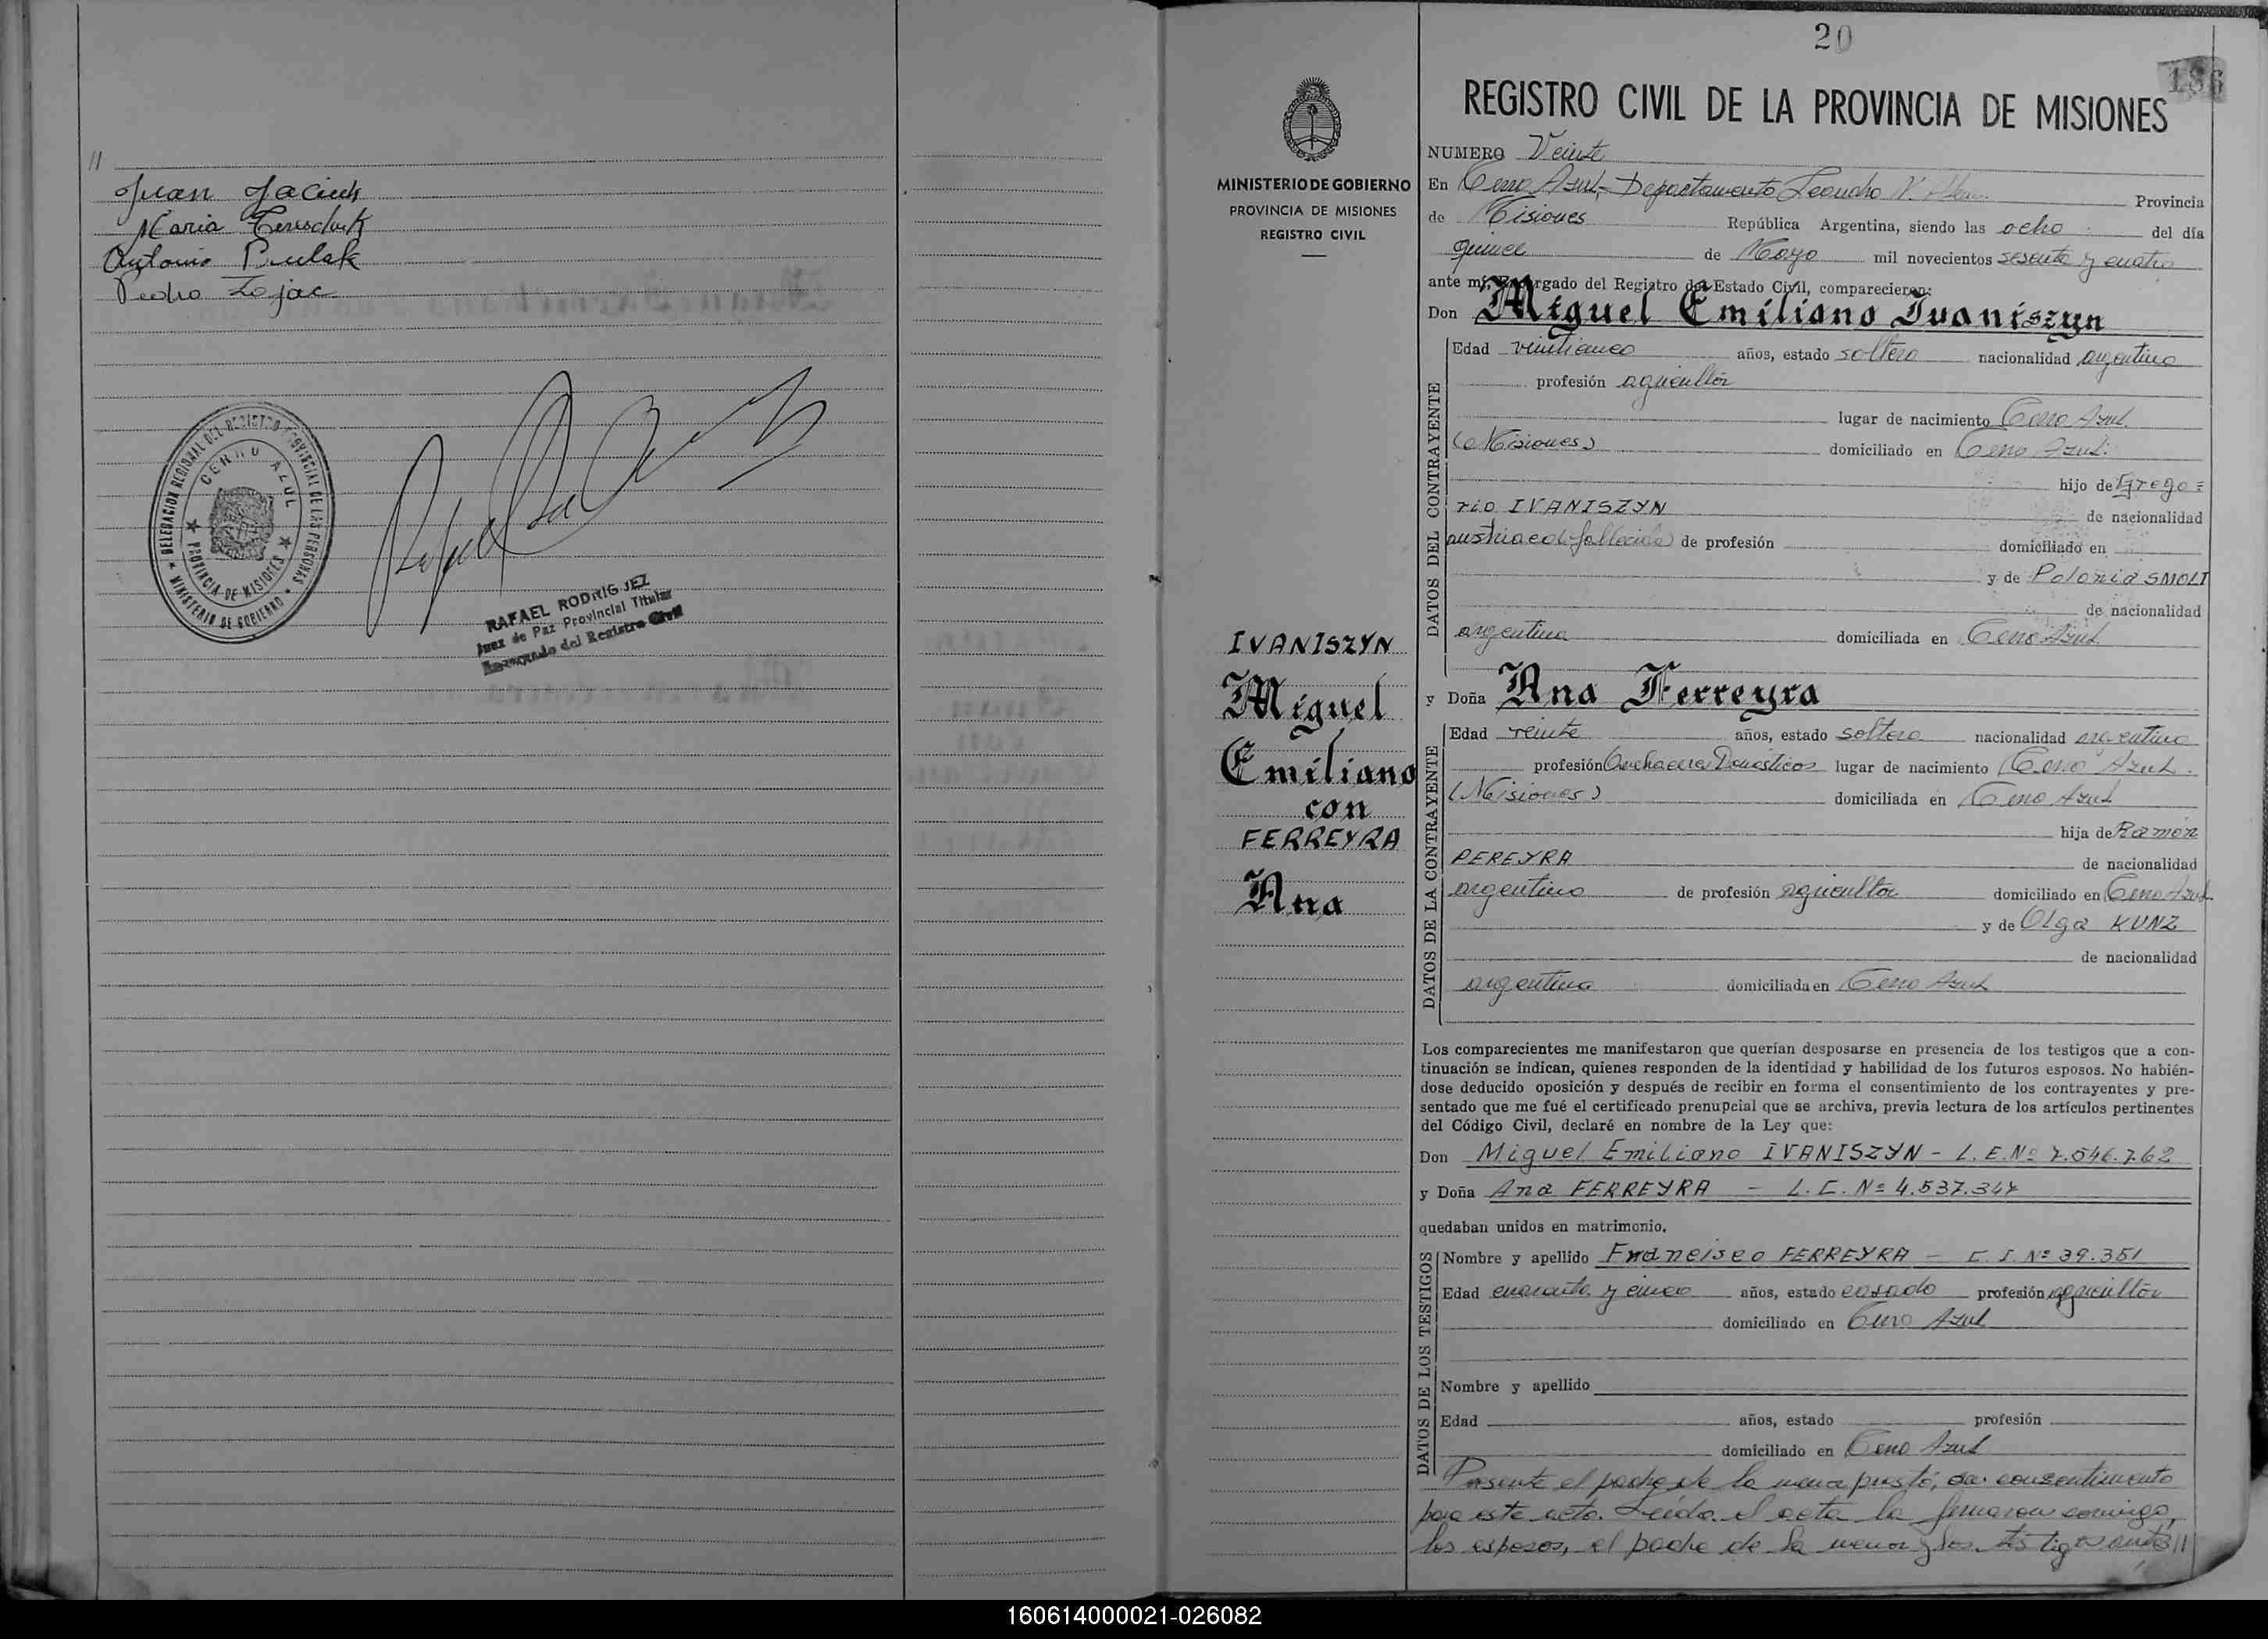 //
Juan Jaciuk
Maria
Antonio
Pedro Zajac
DELEGACION REGIONAL DEL REGISTRO PROVINCIAL DE LAS PERSONAS
CERRO AZUL
PROVINCIA DE MISIONES
MINISTERIO DE GOBIERNO
RAFAEL RODRIGUEZ
Juez de Paz Provincial Titular
Encargado del Registro Civil
20
186
REGISTRO CIVIL DE LA PROVINCIA DE MISIONES
MINISTERIO DE GOBIERNO
PROVINCIA DE MISIONES
REGISTRO CIVIL
IVANISZYN
Miguel
Emiliano
con
FERREYRA
Ana
NUMERO Veinte
En Cerro Azul,- Departamento Leandro N. Alem Provincia
de Misiones República Argentina, siendo las ocho del día
quince de Mayo mil novecientos sesenta y cuatro
ante mí, Encargado del Registro del Estado Civil, comparecieron:
Don Miguel Emiliano Ivaniszyn
DATOS DEL CONTRAYENTE
Edad veinticinco años, estado soltero nacionalidad argentino
profesión agricultor
lugar de nacimiento Cerro Azul
(Misiones) domiciliado en Cerro Azul.
hijo de Grego=
rio IVANISZYN de nacionalidad
austriaco (fallecido) de profesión domiciliado en
y de Polonia SMOLI
de nacionalidad
argentina domiciliada en Cerro Azul
y Doña Ana Ferreyra
DATOS DE LA CONTRAYENTE
Edad veinte años, estado soltera nacionalidad argentina
profesión Quehaceres Domésticos lugar de nacimiento Cerro Azul.
(Misiones) domiciliada en Cerro Azul
hija de Ramón
PEREYRA de nacionalidad
argentino de profesión agricultor domiciliado en Cerro Azul
y de Olga KUNZ
de nacionalidad
argentina domiciliada en Cerro Azul
Los comparecientes me manifestaron que querían desposarse en presencia de los testigos que a con-
tinuación se indican, quienes responden de la identidad y habilidad de los futuros esposos. No habién-
dose deducido oposición y después de recibir en forma el consentimiento de los contrayentes y pre-
sentado que me fué el certificado prenupcial que se archiva, previa lectura de los artículos pertinentes
del Código Civil, declaré en nombre de la Ley que:
Don Miguel Emiliano IVANISZYN - L. E. Nº 7.546.762
y Doña Ana FERREYRA - L. C. Nº 4.537.347
quedaban unidos en matrimonio.
DATOS DE LOS TESTIGOS
Nombre y apellido Francisco FERREYRA - C. I. Nº 39.351
Edad cuarenta y cinco años, estado casado profesión agricultor
domiciliado en Cerro Azul
Nombre y apellido
Edad años, estado profesión
domiciliado en Cerro Azul
Presente el padre de la menor prestó, su consentimiento
para este acto. Leída el acta la firmaron conmigo,
los esposos, el padre de la menor y los testigos antes//
160614000021-026082